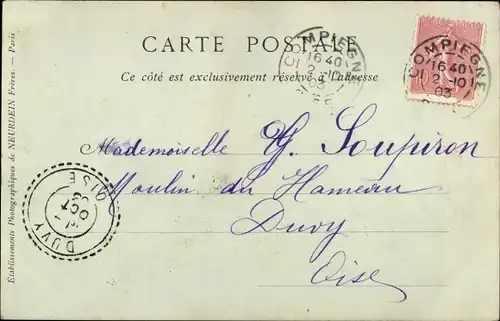 CARTE POSTALE
Ce côté est exclusivement réservé à l'adresse
COMPIEGNE
16 40
2 -10
03
COMPIEGNE
16 40
2 -10
03
Mademoiselle G. Soupiron
Moulin du Hameau
Duvy
Oise
DUVY
OCT
03
OISE
Établissements Photographiques de NEURDEIN Frères. — Paris